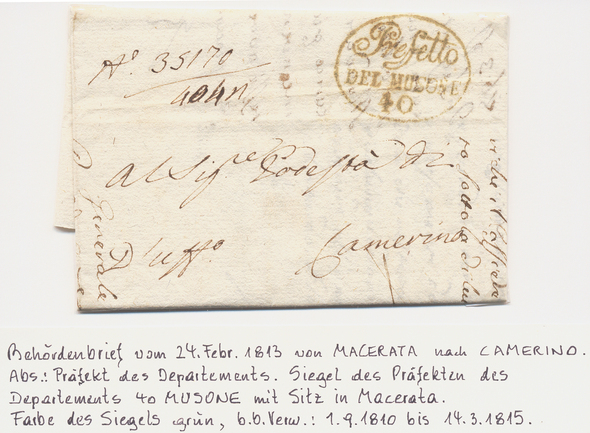 Prefetto
DEL MUSONE
40
N.° 35170
Al Sig.re Podestà di
Camerino
D'uffo.
Generale
Behördenbrief vom 24. Febr. 1813 von MACERATA nach CAMERINO.
Abs.: Präfekt des Departements. Siegel des Präfekten des
Departements 40 MUSONE mit Sitz in Macerata.
Farbe des Siegels grün, b.b. Verw.: 1.9.1810 bis 14.3.1815.